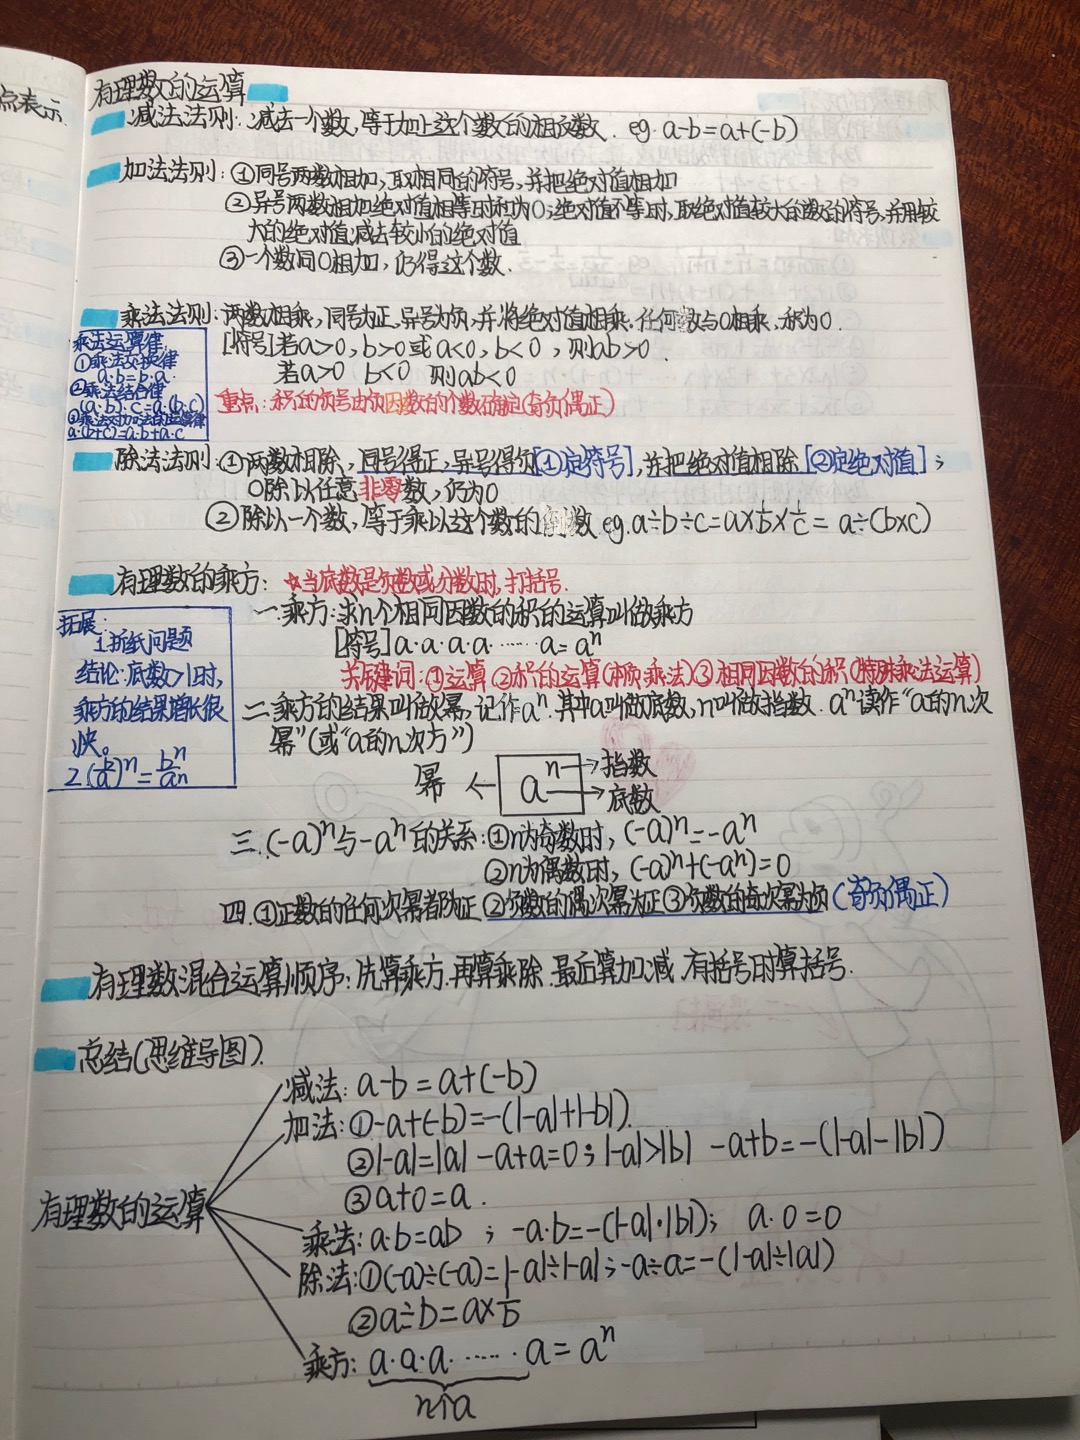 点表示.
有理数的运算
减法法则: 减去一个数,等于加上这个数的相反数. eg. a-b=a+(-b)
加法法则: ①同号两数相加,取相同的符号,并把绝对值相加
②异号两数相加绝对值相等时和为0;绝对值不等时,取绝对值较大的数的符号,并用较
大的绝对值减去较小的绝对值
③一个数同0相加,仍得这个数.
乘法法则: 两数相乘,同号为正,异号为负,并将绝对值相乘.任何数与0相乘,积为0.
[符号]若a>0,b>0或a<0,b<0,则ab>0.
若a>0 b<0 则ab<0
重点: 积的负号由负因数的个数确定(奇负偶正)
乘法运算律
①乘法交换律
a·b=b·a.
②乘法结合律
(a·b)·c=a·(b·c)
③乘法对加法的运算律
a·(b+c)=a·b+a·c
除法法则: ①两数相除,同号得正,异号得负[①定符号],并把绝对值相除[②定绝对值];
0除以任意非零数,仍为0
②除以一个数,等于乘以这个数的倒数 eg. a÷b÷c=a×1/b×1/c=a÷(b×c)
有理数的乘方: ☆当底数是负数或分数时,打括号.
一.乘方:求n个相同因数的积的运算叫做乘方
[符号]a·a·a·a·……·a=aⁿ
关键词:①运算②积的运算(本质:乘法)③相同因数的积(特殊乘法运算)
二.乘方的结果叫做幂,记作aⁿ.其中a叫做底数,n叫做指数.aⁿ读作“a的n次
幂”(或“a的n次方”)
幂 ← aⁿ → 指数
→ 底数
拓展:
1.折纸问题
结论:底数>1时,
乘方的结果增长很
快。
2.(b/a)ⁿ=bⁿ/aⁿ
三.(-a)ⁿ与-aⁿ的关系:①n为奇数时,(-a)ⁿ=-aⁿ
②n为偶数时,(-a)ⁿ+(-aⁿ)=0
四.①正数的任何次幂都为正②负数的偶次幂为正③负数的奇次幂为负(奇负偶正)
有理数混合运算顺序:先算乘方.再算乘除.最后算加减.有括号时算括号.
总结(思维导图).
有理数的运算
减法: a-b=a+(-b)
加法:①-a+(-b)=-(|-a|+|-b|).
②|-a|=|a| -a+a=0;|-a|>|b| -a+b=-(|-a|-|b|)
③a+0=a.
乘法:a·b=ab ; -a·b=-(|-a|·|b|); a·0=0
除法:①(-a)÷(-a)=|-a|÷|-a|;-a÷a=-(|-a|÷|a|)
②a÷b=a×1/b
乘方: a·a·a·……·a=aⁿ
n个a